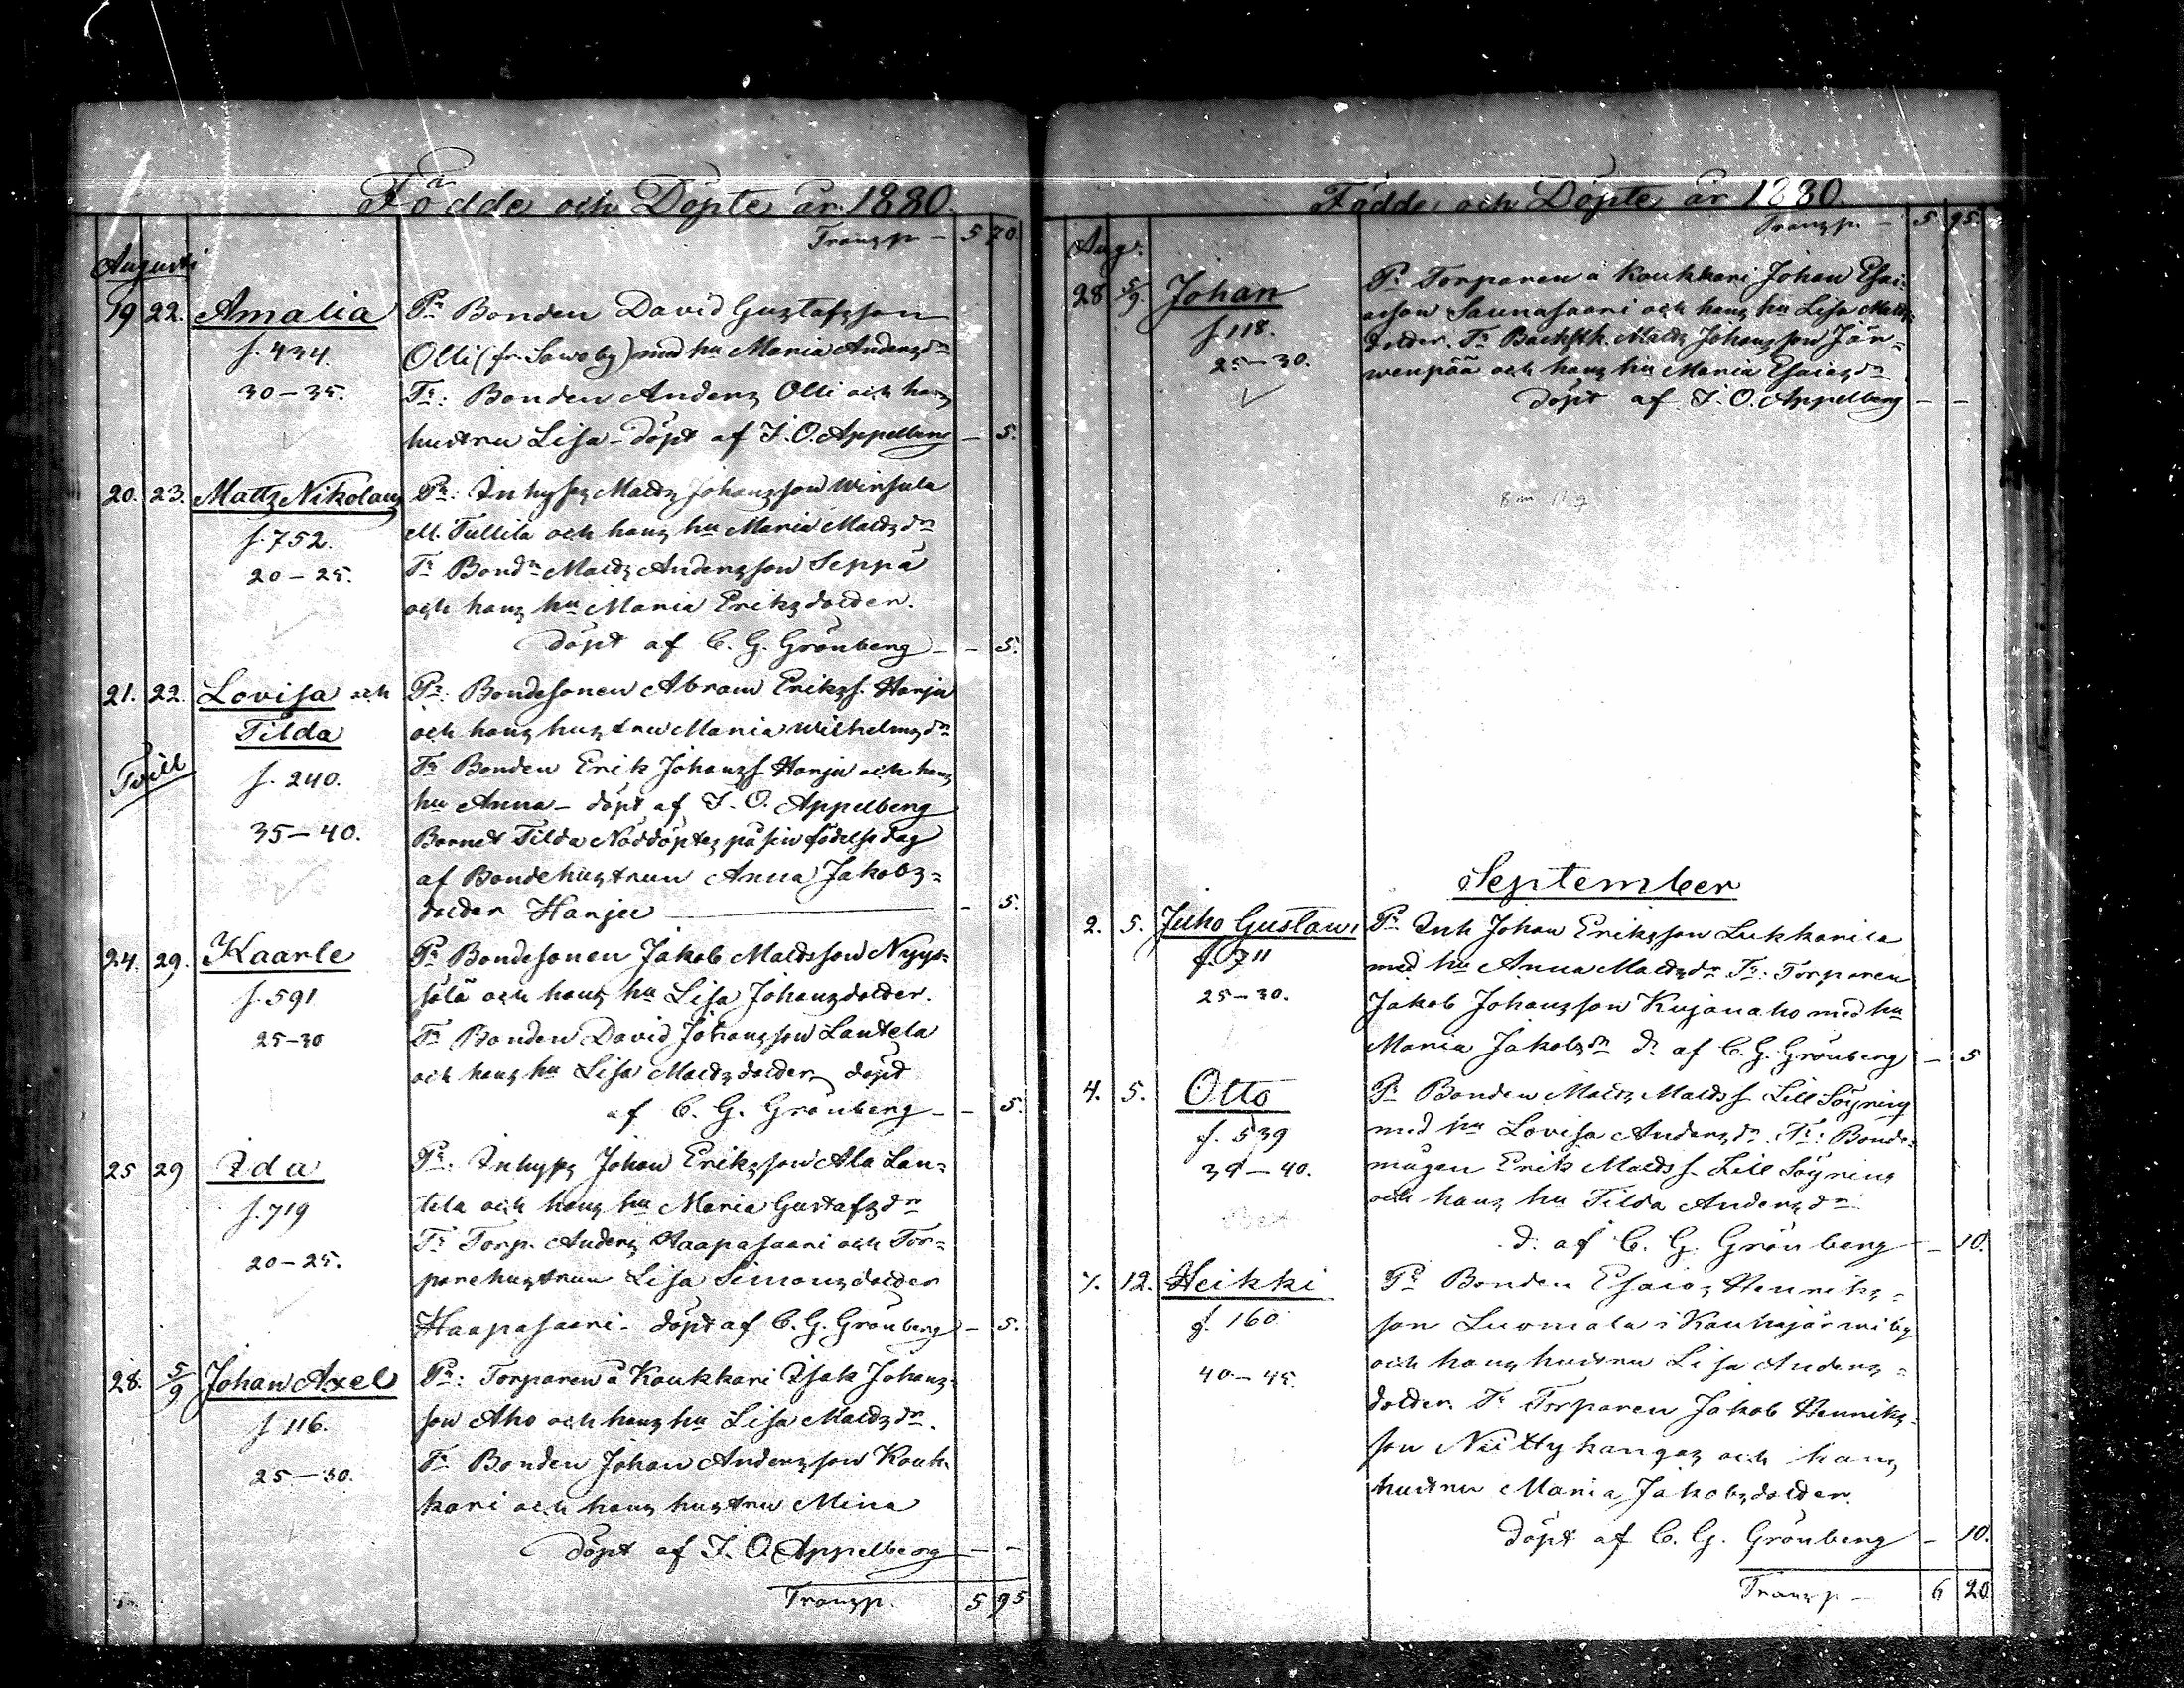 Födde och Döpte år 1880.
Transp – 5 70.
Augusti
19 22. Amalia Pr Bonden David Gustafsson
f. 434. Olli (fr Sawoby) med hu Maria Andersdr
30–35. Fr: Bonden Anders Olli och hans
hustru Lisa – döpt af J. O. Appelberg – 5.
20. 23. Matts Nikolaus Pr: Inhyses Matts Johansson Wirsula
f. 752. M. Tullila och hans hu Maria Mattsdr
20–25. Fr Bondn Matts Andersson Seppä
och hans hu Maria Eriksdotter.
döpt af C. G. Grönberg – – 5.
21. 22. Lovisa och Pr: Bondesonen Abram Eriksf. Harju
Tilda och hans hustru Maria Wilhelmsdr
Tvill f. 240. Fr Bonden Erik Johansf. Harju och hans
hu Anna – döpt af J. O. Appelberg
35–40. Barnet Tilda Nöddöptes på sin födelsedag
af Bondehustrun Anna Jakobs=
dotter Harju – 5.
24. 29. Kaarle Pr Bondesonen Jakob Mattsson Nyys=
f. 591 sölä och hans hu Lisa Johansdotter.
25–30 Fr Bonden David Johansson Lantela
och hans hu Lisa Mattsdotter, döpt
af C. G. Grönberg – – 5.
25 29 Ida Pr. Inhyses Johan Eriksson Ala Lan=
f. 719 tela och hans hu Maria Gustafsdr
20–25. Fr Torp. Anders Haapasaari och Tor=
parehustrun Lisa Simonsdotter
Haapasaari – döpt af C. G. Grönberg – 5.
28. 5/9 Johan Axel Pr: Torparen å Koukkari Isak Johans=
f 116. son Aho och hans hu Lisa Mattsdr.
25–30. Fr Bonden Johan Andersson Kouk=
kari och hans hustru Mina
döpt af J. O. Appelberg – –
Transp. 5 95
Födde och Döpte år 1880.
Transp. – 5 95.
Aug.
28 5/9. Johan Pr Torparen å Koukkari Johan Esai=
f 118. asson Saunasaari och hans hu Lisa Matts=
25–30. dotter. Fr Backstk. Matts Johansson Jär=
wenpää och hans hu Maria Esaiasdr
döpt af J. O. Appelberg – –
8 m 11 q
September
2. 5. Juho Gustaw, Pr Inh Johan Eriksson Lukkarila
f. 711 med hu Anna Mattsdr Fr: Torparen
25–30. Jakob Johansson Kujanaho med hu
Maria Jakobsdr d. af C. G. Grönberg – 5
4. 5. Otto Pr Bonden Matts Mattsf. Lill Söyring
f. 539 med hu Lovisa Andersdr. Fr: Bonde=
39–40. mågen Erik Mattsf. Lill Söyring
och hans hu Tilda Andersdr
d. af C. G. Grönberg – 10.
7. 12. Heikki Pr Bonden Esaias Henriks=
f. 160 son Luomala i Kauhajärwi by
40–45. och hans hustru Lisa Anders=
dotter. Fr Torparen Jakob Henriks=
son Niittykangas och hans
hustru Maria Jakobsdotter.
döpt af C. G. Grönberg – 10.
Transp – 6 20